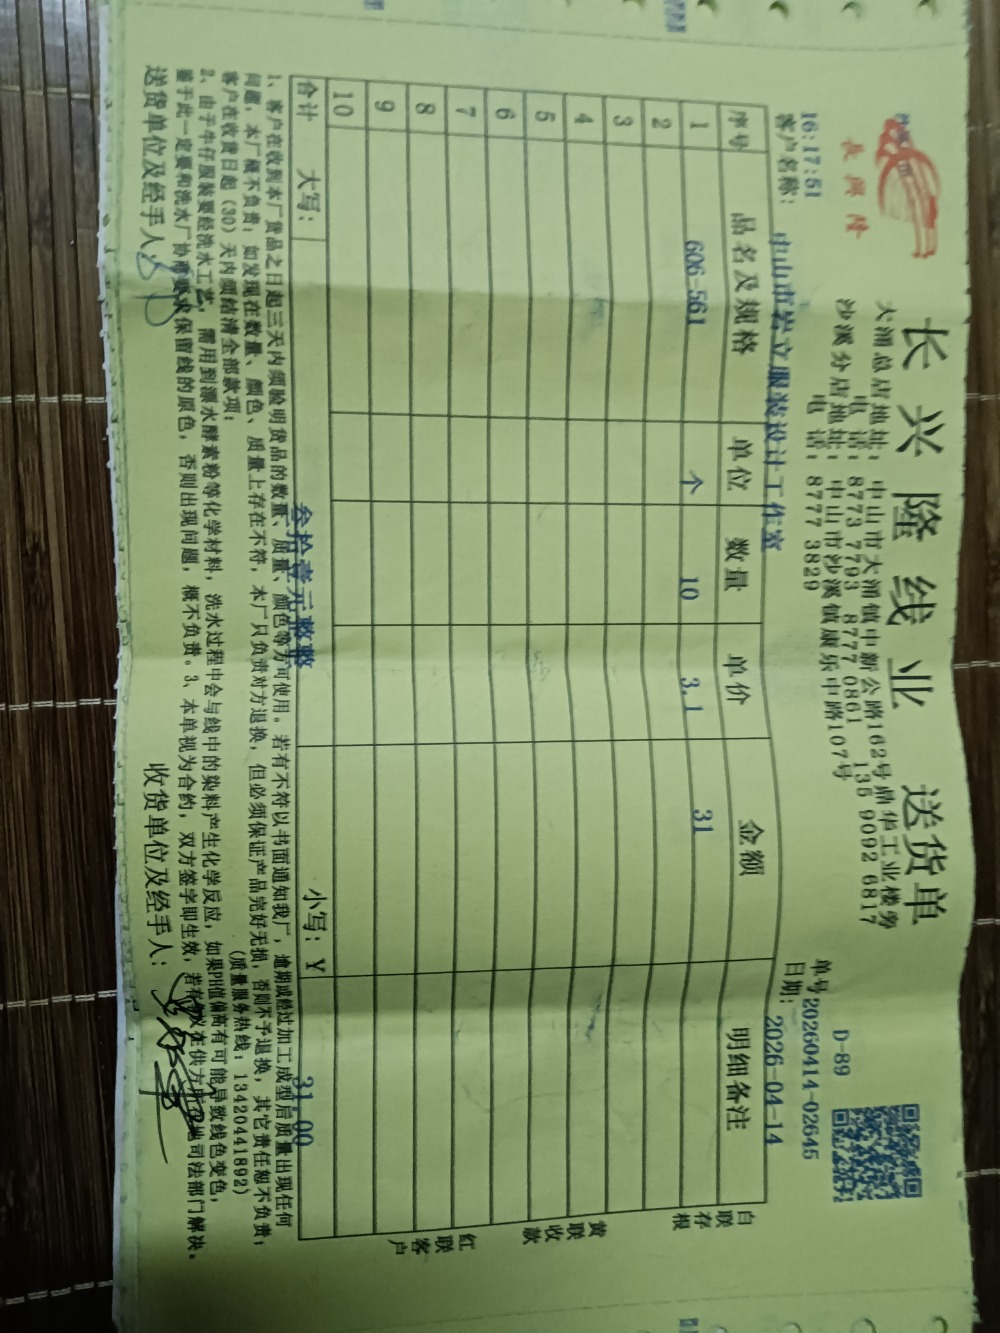 長興隆
长兴隆线业 送货单
D-89
大涌总店地址：中山市大涌镇中新公路162号鼎华工业楼旁
电 话：8773 7793 8777 0861 135 9092 6817
沙溪分店地址：中山市沙溪镇康乐中路107号
电 话：8777 3829
单号 20260414-02645
16:17:51
日期：2026-04-14
客户名称：中山市岩立服装设计工作室
序号 品名及规格 单位 数量 单价 金额 明细备注
1 606-561 个 10 3.1 31
2
3
4
5
6
7
8
9
10
合计 大写： 叁拾壹元整整 小写：￥ 31.00
白联存根
黄联收款
红联客户
1、客户在收到本厂货品之日起三天内须验明货品的数量、质量、颜色等方可使用。若有不符以书面通知我厂，逾期或经过加工成型后质量出现任何
问题，本厂概不负责；如发现在数量、颜色、质量上存在不符，本厂只负责对方退换，但必须保证产品完好无损，否则不予退换，其它责任恕不负责；
客户在收货日起（30）天内须结清全部款项； （质量服务热线：13420441892）
2、由于牛仔服装要经洗水工艺，需用到漂水酵素粉等化学材料，洗水过程中会与线中的染料产生化学反应，如果PH值偏高有可能导致线色变色，
鉴于此一定要和洗水厂协商要求保留线的原色，否则出现问题，概不负责。3、本单视为合约，双方签字即生效，若有争议在供方所在地司法部门解决。
送货单位及经手人： 收货单位及经手人：